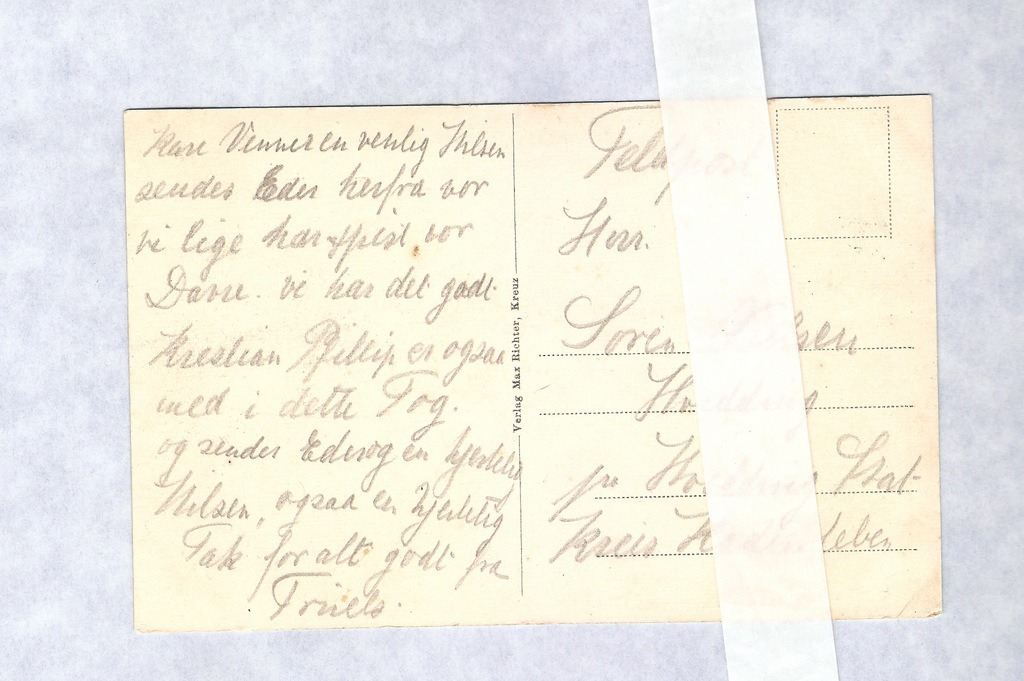 Kære Venner en venlig Hilsen
sendes Eder herfra vor
vi lige har spist vor
Davre. vi har det godt
Krestian Phillip er ogsaa
med i dette Tog.
og sender Ederog en hjertelig
Hilsen, ogsaa en hjertelig
Tak for alt godt fra
Troels.
Verlag Max Richter, Kreuz
Feldpost
Herr.
Sören
pr Stat-
Kreis Hadersleben